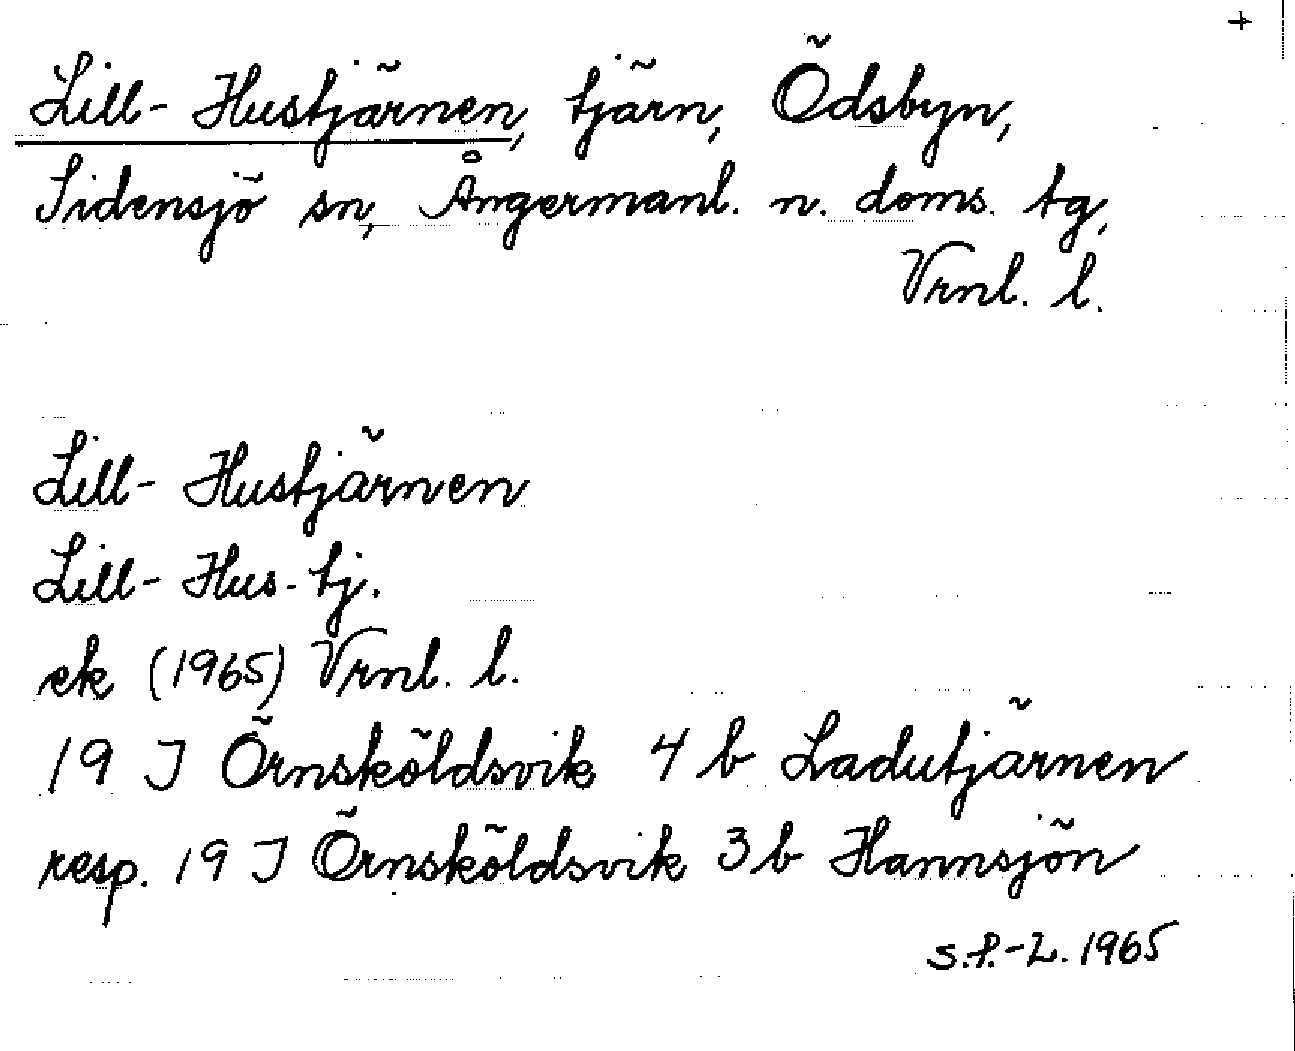 +
Lill-Hustjärnen, tjärn, Ödsbyn,
Sidensjö sn, Ångermanl. n. doms. tg,
Vrnl. l.
Lill-Hustjärnen
Lill-Hus-tj.
ek (1965) Vrnl. l.
19 J Örnsköldsvik 4 b Ladutjärnen
resp. 19 J Örnsköldsvik 3 b Hannsjön
S.P.-L. 1965